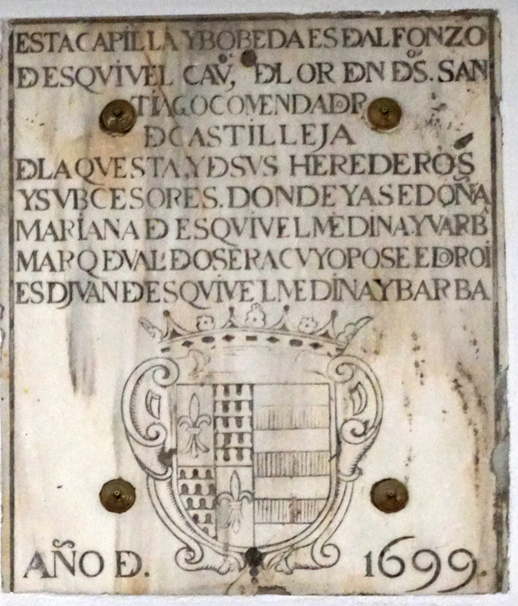 ESTA CAPILLA Y BOBEDA ES Đ ALFONZO
Đ ESQVIVEL CAVº, ĐL ORN ĐN ĐS. SAN
TIAGO COMENDADR
Đ CASTILLEJA
Đ LA QVESTA, Y Đ SVS HEREDEROS
Y SVBCESORES. DONDE YASE DOÑA
MARIANA Đ ESQVIVEL MEDINA Y VARBA
MARQ Đ VAL Đ OSERA CVYO POSEEDOR OI
ES D JVAN Đ ESQVIVEL MEDINA Y BARBA
AÑO Đ. 1699.